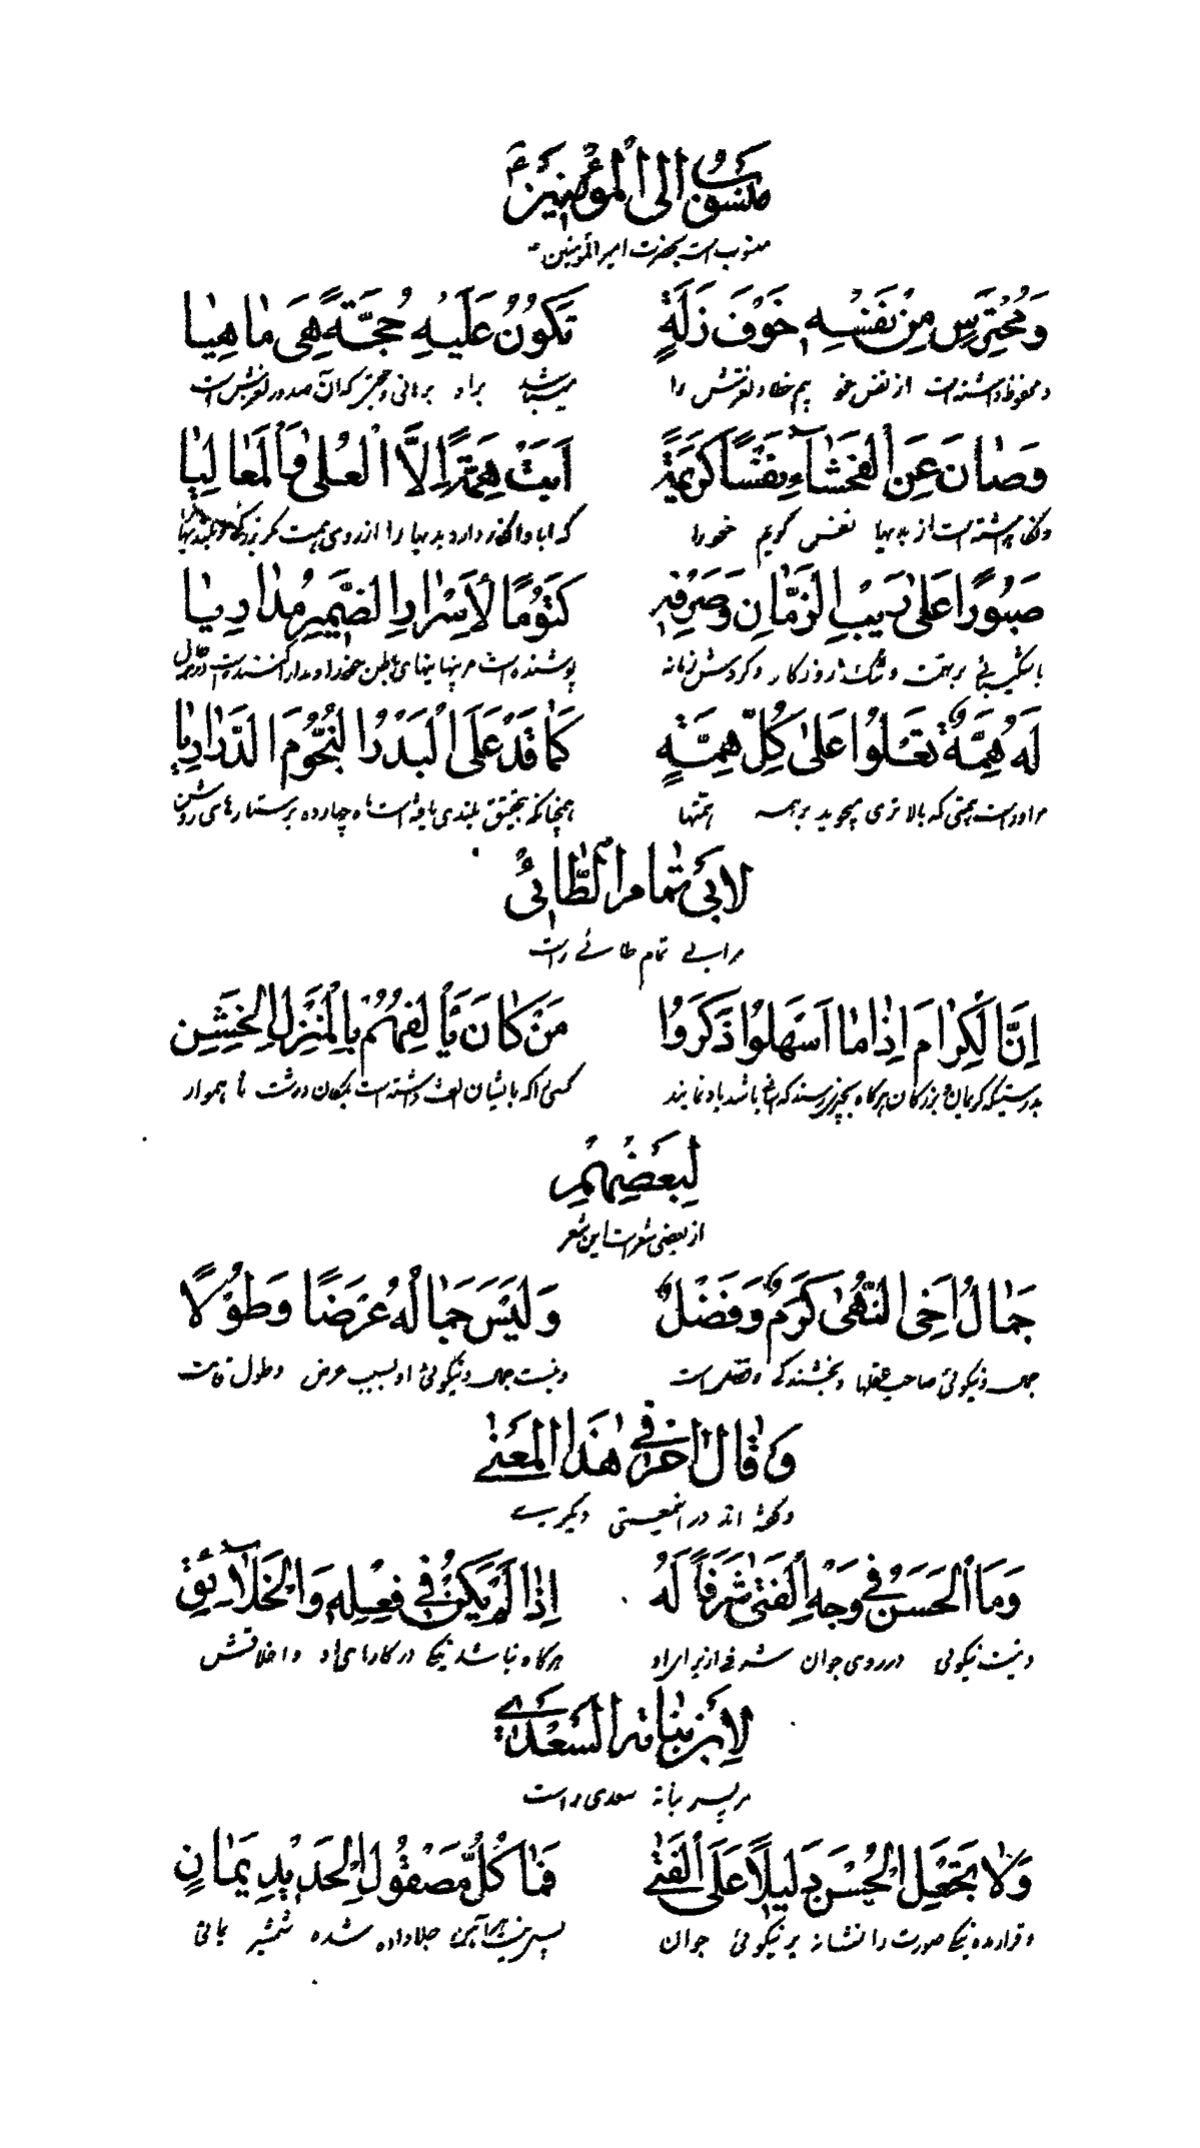 مَنسُوبٌ اِلَى الْمُؤمِنِينَ ع
منسوب است بحضرت امیر المؤمنین ع
وَمُحْتَرِسٍ مِنْ نَفْسِهِ خَوْفَ زَلَّةٍ تَكُونُ عَلَيْهِ حُجَّةً هِيَ مَاهِيَا
و محفوظ داشته است از نفس خود بیم خطا و لغزش را میباشد بر او برهانی و حجتی که آن صدور لغزش است
وَصَانَ عَنِ الْفَحْشَآءِ نَفْسًا كَرِيمَةً اَبَتْ هِمَّةً اِلَّا الْعُلىٰ وَالْمَعَالِيَا
و نگاه داشته است از بدیها نفس کریم خود را که ابا و انکار دارد بدیها را از روی همت مگر بزرگی و بلندیها
صَبُورًا عَلىٰ رَيْبِ الزَّمَانِ وَصَرْفِهِ كَتُومًا لِأَسْرَارِ الضَّمِيرِ مُدَارِيَا
با شکیبائی بر تهمت و شک روزکار و کردش زمانه پوشنده است مر پنهانیهای باطن خود را و مدارا کننده است
لَهُ هِمَّةٌ تَعْلُوا عَلىٰ كُلِّ هِمَّةٍ كَمَا قَدْ عَلَى الْبَدْرُ النُّجُومَ الدَّرَارِيَا
مر او راست همتی که بالا تری میجوید بر همه همتها همچنانکه بتحقیق بلندی یافته است ماه چهارده بر ستارهای روشن
لِأَبِي تَمَامِ الطَّائِيِّ
مر ابی تمام طائی راست
اِنَّ الْكِرَامَ اِذَا مَا اَسْهَلُوا ذَكَرُوا مَنْ كَانَ يَأْلَفُهُمْ بِالْمَنْزِلِ الْخَشِنِ
بدرستیکه کریمان و بزرکان هرکاه بچیزی رسند که باشد یاد نمایند کسی را که با ایشان الفت داشته است بمکان درشت نا هموار
لِبَعْضِهِمْ
از بعضی شعر است این شعر
جَمَالُ اَخِي النُّهىٰ كَرَمٌ وَفَضْلٌ وَلَيْسَ جَمَالُهُ عَرْضًا وَطُوْلًا
جمال و نیکوئی صاحب عقلها بخشندکی و فضل است و نیست جمال و نیکوئی او بسبب عرض و طول قامت
وَقَالَ آخَرُ فِي هٰذَا الْمَعْنىٰ
و گفته اند در این معنی دیگری
وَمَا الْحُسْنُ فِي وَجْهِ الْفَتىٰ شَرَفًا لَهُ اِذَا لَمْ يَكُنْ فِي فِعْلِهِ وَالْخَلَآئِقِ
و نیست نیکوئی در روی جوان شرفی از برای او هرکاه نباشد نیکی در کارهای او و اخلاقش
لِأِبْنِ نَبَاتَةَ السَّعْدِيّ
مر پسر نباته سعدی راست
وَلَا تَجْعَلِ الْحُسْنَ دَلِيلًا عَلَى الْفَتىٰ فَمَا كُلُّ مَصْقُولِ الْحَدِيدِ يَمَانِ
و قرار مده نیکی صورت را نشانه بر نیکوئی جوان پس نیست هر آهن جلا داده شده شمشیر یمانی